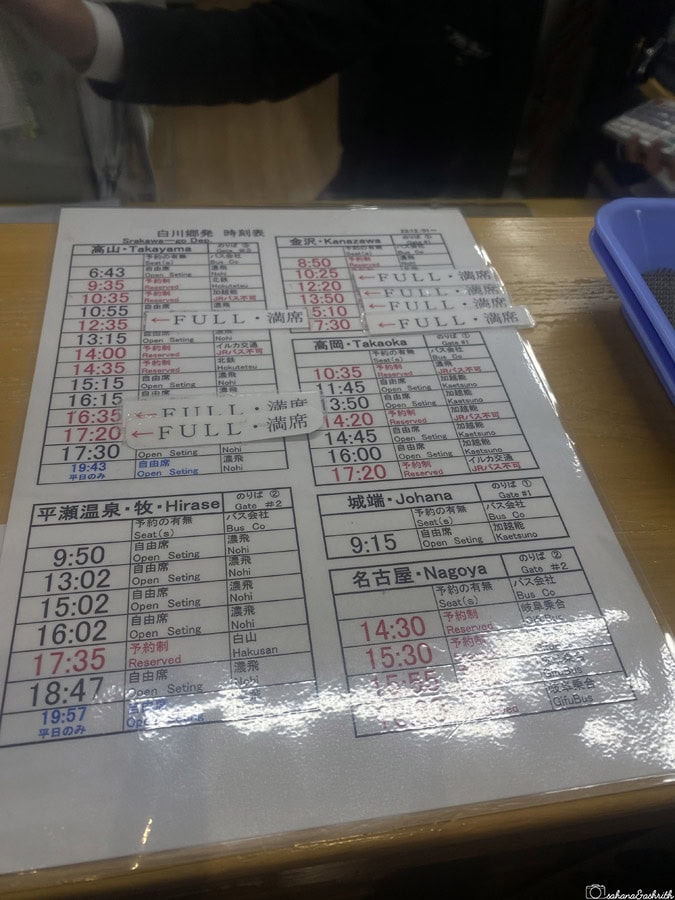 白川郷発 時刻表
高山・Takayama のりば
予約の有無 バス会社
Seat(s) Bus Co
6:43 自由席 Open Seting 濃飛 Nohi
9:35 予約制 Reserved 北鉄 Hokutetsu
10:35 予約制 Reserved 濃飛 JRバス不可
10:55 自由席 Open Seting 濃飛
12:35 ←FULL・満席
13:15 自由席 Open Seting 濃飛 Nohi
14:00 予約制 Reserved イルカ交通 JRバス不可
14:35 予約制 Reserved 北鉄 Hokutetsu
15:15 自由席 Open Seting 濃飛 Nohi
16:15 自由席 濃飛 Nohi
16:35 ←FULL・満席
17:20 ←FULL・満席
17:30 Open Seting Nohi
19:43 平日のみ 自由席 Open Seting 濃飛 Nohi
平瀬温泉・牧・Hirase のりば ② Gate #2
予約の有無 バス会社
Seat(s) Bus Co
9:50 自由席 Open Seting 濃飛 Nohi
13:02 自由席 Open Seting 濃飛 Nohi
15:02 自由席 Open Seting 濃飛 Nohi
16:02 自由席 Open Seting 濃飛 Nohi
17:35 予約制 Reserved 白山 Hakusan
18:47 自由席 Open Seting 濃飛 Nohi
19:57 平日のみ Open 濃飛 Nohi
金沢・Kanazawa のりば
予約の有無 バス会社
Seat(s) Bus Co
8:50 予約制
10:25 ←FULL・満席
12:20 ←FULL・満席
13:50 ←FULL・満席
5:10
7:30 ←FULL・満席
高岡・Takaoka のりば ① Gate #1
予約の有無 バス会社
Seat(s) Bus Co
10:35 予約制 Reserved 濃飛 JRバス不可
11:45 自由席 Open Seting 加越能 Kaetsuno
3:50 自由席 Open Seting 加越能 Kaetsuno
14:20 予約制 Reserved 加越能 JRバス不可
14:45 自由席 Open Seting 加越能 Kaetsuno
16:00 自由席 Open Seting 加越能 Kaetsuno
17:20 予約制 Reserved イルカ交通 JRバス不可
城端・Johana のりば ① Gate #1
予約の有無 バス会社
Seat(s) Bus Co
9:15 自由席 Open Seting 加越能 Kaetsuno
名古屋・Nagoya のりば ② Gate #2
予約の有無 バス会社
Seat(s) Bus Co
14:30 予約制 Reserved 岐阜乗合
15:30 予約制
15:55 GifuBus
岐阜乗合 GifuBus
sahana&ashrith